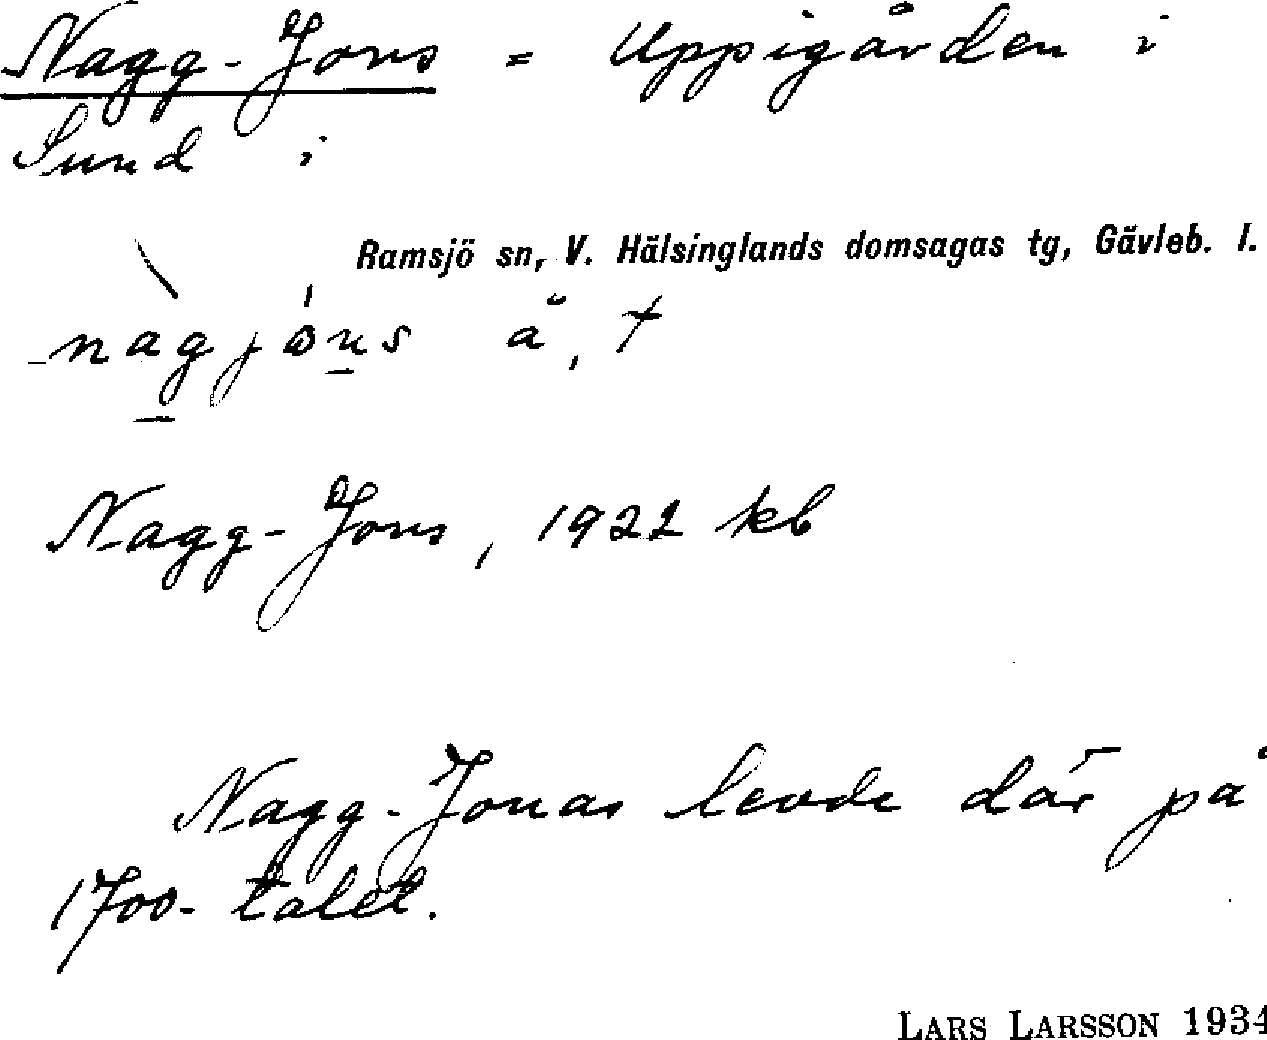 Nagg-Jons = Uppigården i
Sund i
Ramsjö sn, V. Hälsinglands domsagas tg, Gävleb. l.
nàgjóns å, †
Nagg-Jons, 1922 kb
Nagg-Jonas levde där på
1700-talet.
LARS LARSSON 1934